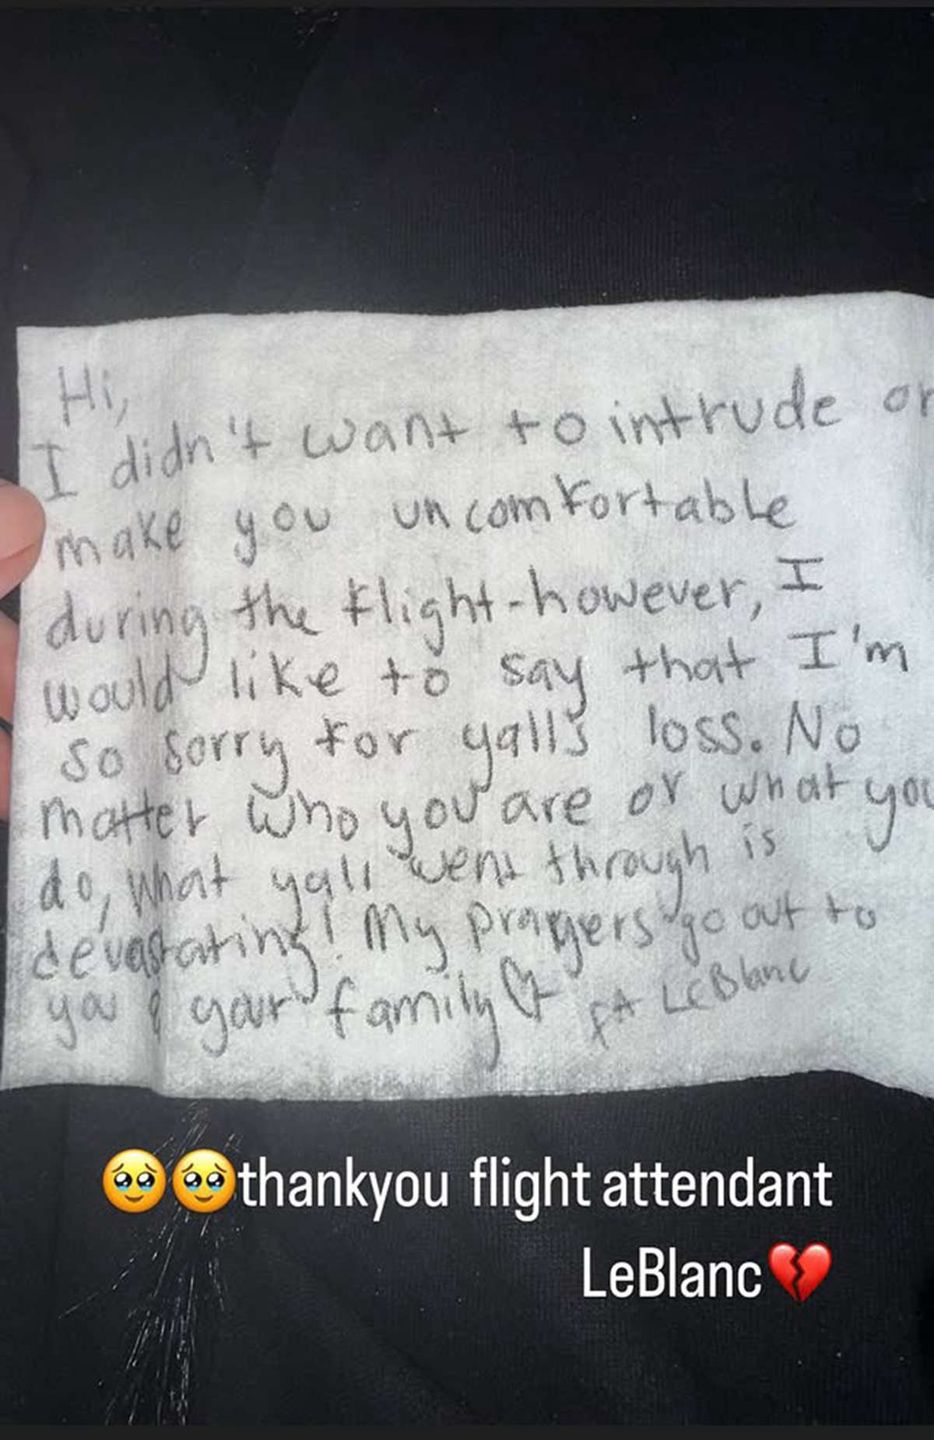 Hi,
I didn't want to intrude or
make you uncomfortable
during the flight-however, I
would like to say that I'm
so sorry for yall's loss. No
matter who you are or what you
do, what yall went through is
devastating! My prayers go out to
you & your family ♡ FA LeBlanc
🥹🥹thankyou flight attendant
LeBlanc💔